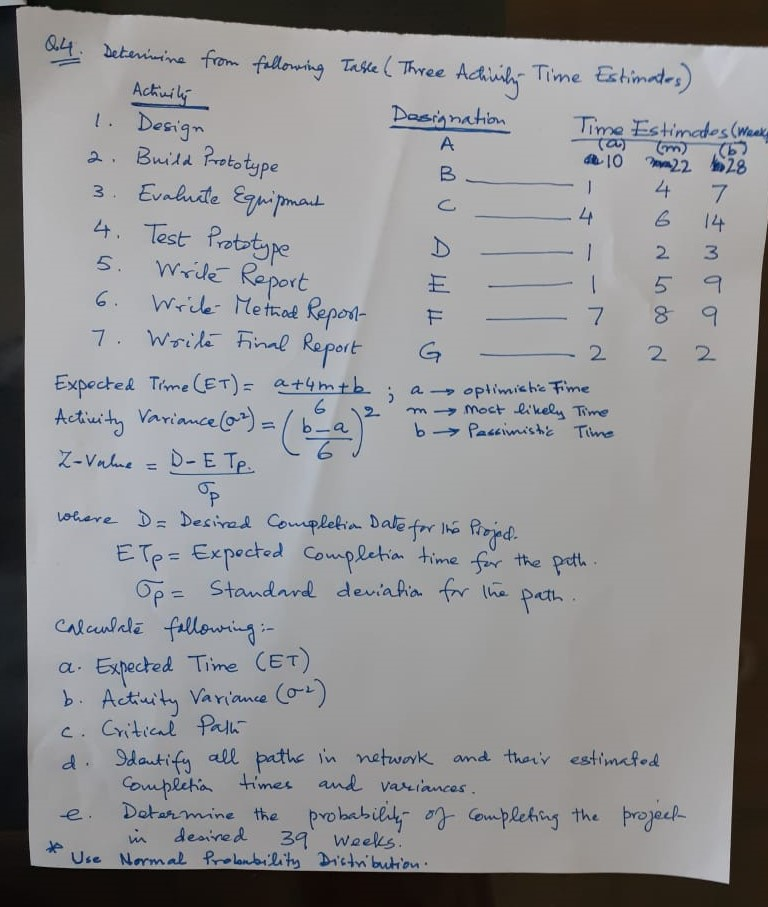 Q4. Determine from following Table (Three Activity Time Estimates)
Activity Designation Time Estimates (Weeks
(a) (m) (b)
1. Design A 10 22 28
2. Build Prototype B 1 4 7
3. Evaluate Equipment C 4 6 14
4. Test Prototype D 1 2 3
5. Write Report E 1 5 9
6. Write Method Report F 7 8 9
7. Write Final Report G 2 2 2
Expected Time (ET) = a+4m+b / 6 ; a → optimistic Time
Activity Variance (σ²) = (b-a / 6)² m → Most likely Time
b → Pessimistic Time
Z-Value = D - ETp. / σp
where D = Desired Completion Date for the Project.
ETp = Expected Completion time for the path.
σp = Standard deviation for the path.
Calculate following:-
a. Expected Time (ET)
b. Activity Variance (σ²)
c. Critical Path
d. Identify all paths in network and their estimated
Completion times and variances.
e. Determine the probability of completing the project
in desired 39 weeks.
* Use Normal Probability Distribution.